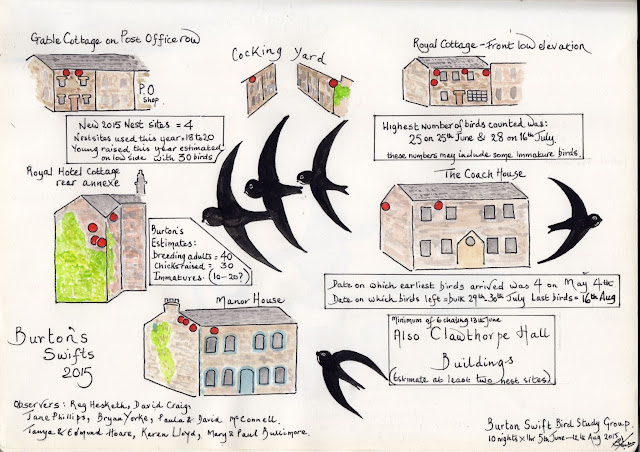 Gable Cottage on Post Office row
Cocking Yard
Royal Cottage - Front low elevation
P.O
Shop.
New 2015 Nest sites = 4
Nest sites used this year = 18 to 20
Young raised this year estimated
on low side with 30 birds
Highest Number of birds counted was:
25 on 25th June & 28 on 16th July.
these numbers may include some Immature birds.
Royal Hotel Cottage
rear annexe
The Coach House
Burton's
Estimates:
breeding adults = 40
Chicks raised = 30
Immatures. (10-20?)
Date on which earliest birds arrived was 4 on May 4th
Date on which birds left = bulk 29th 30th July Last birds = 16th Aug
Manor House
Minimum of 6 chasing 13th June
Also Clawthorpe Hall
Buildings
(Estimate at least two nest sites)
Burton's
Swifts
2015
Observers: Reg Hesketh, David Craig,
Jane Phillips, Bryan Yorke, Paula & David McConnell.
Tanya & Edmund Hoare, Karen Lloyd, Mary & Paul Bullimore.
Burton Swift Bird Study Group.
10 nights x 1hr 5th June - 12th Aug 2015